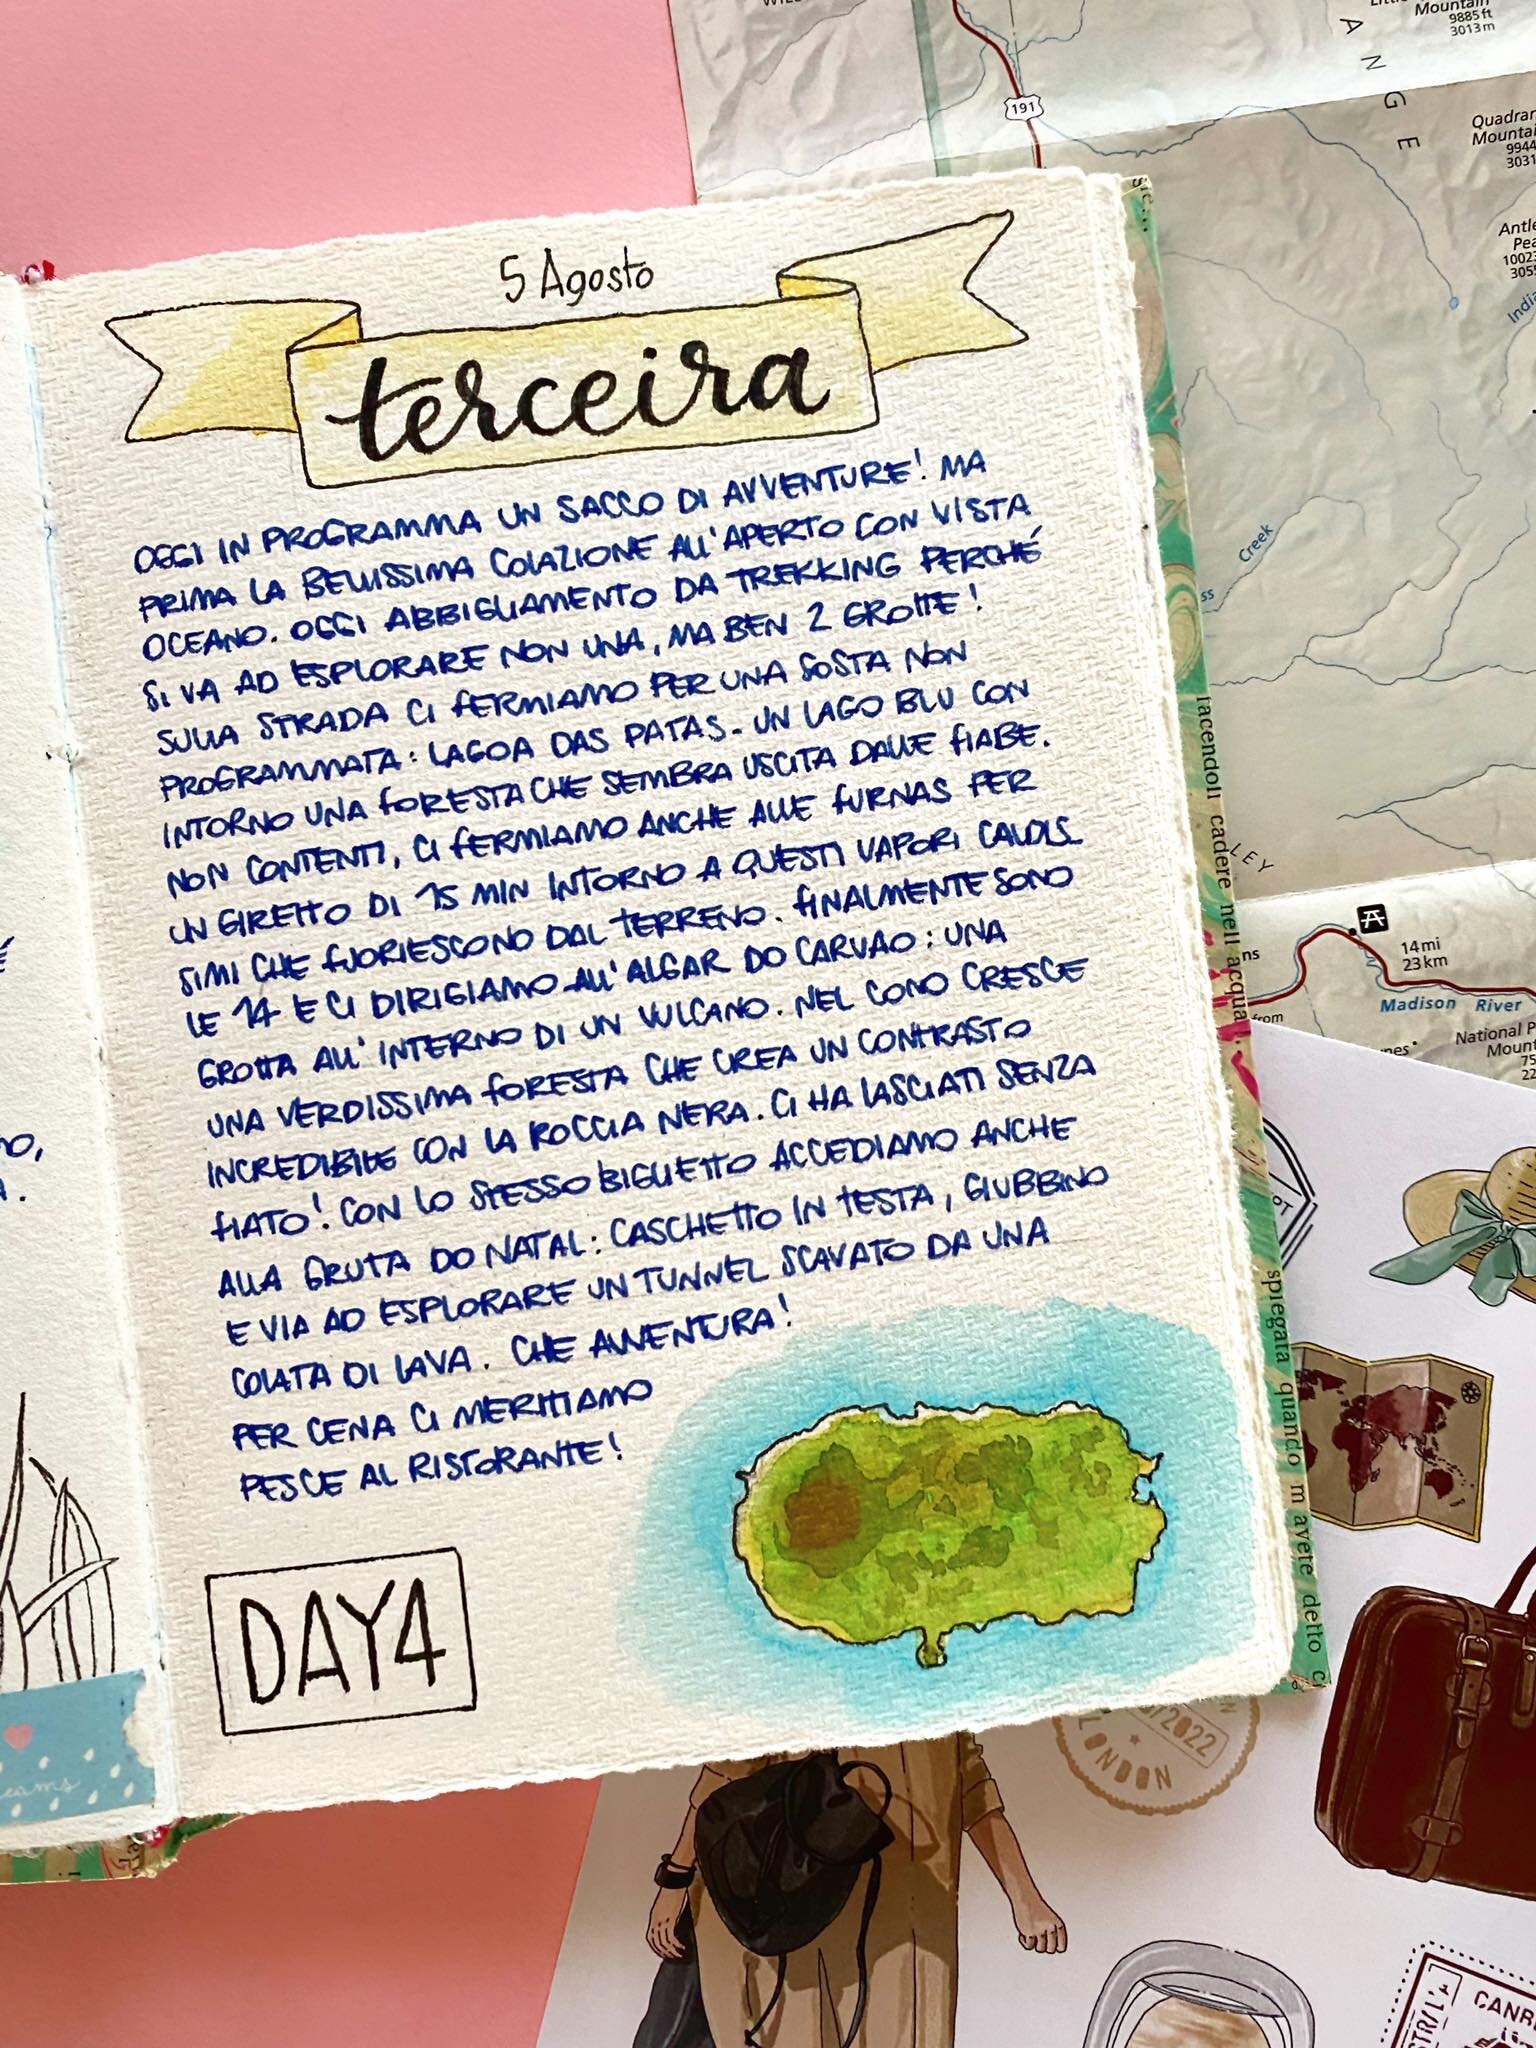 5 Agosto
terceira
OGGI IN PROGRAMMA UN SACCO DI AVVENTURE! MA
PRIMA LA BELLISSIMA COLAZIONE ALL'APERTO CON VISTA
OCEANO. OGGI ABBIGLIAMENTO DA TREKKING PERCHÉ
SI VA AD ESPLORARE NON UNA, MA BEN 2 GROTTE!
SULLA STRADA CI FERMIAMO PER UNA SOSTA NON
PROGRAMMATA: LAGOA DAS PATAS. UN LAGO BLU CON
INTORNO UNA FORESTA CHE SEMBRA USCITA DALLE FIABE.
NON CONTENTI, CI FERMIAMO ANCHE ALLE FURNAS PER
UN GIRETTO DI 15 MIN INTORNO A QUESTI VAPORI CALDIS_
SIMI CHE FUORIESCONO DAL TERRENO. FINALMENTE SONO
LE 14 E CI DIRIGIAMO ALL'ALGAR DO CARVAO: UNA
GROTTA ALL'INTERNO DI UN VULCANO. NEL CONO CRESCE
UNA VERDISSIMA FORESTA CHE CREA UN CONTRASTO
INCREDIBILE CON LA ROCCIA NERA. CI HA LASCIATI SENZA
FIATO! CON LO STESSO BIGLIETTO ACCEDIAMO ANCHE
ALLA GRUTA DO NATAL: CASCHETTO IN TESTA, GIUBBINO
E VIA AD ESPLORARE UN TUNNEL SCAVATO DA UNA
COLATA DI LAVA. CHE AVVENTURA!
PER CENA CI MERITIAMO
PESCE AL RISTORANTE!
DAY 4
Mountain
9885 ft
3013 m
191
ANGE
9944
3031
Creek
LEY
14 mi
23 km
Madison River
from
National
facendoli cadere nell'acqua.
spiegata quando m'avete detto c
/2022
LONDON